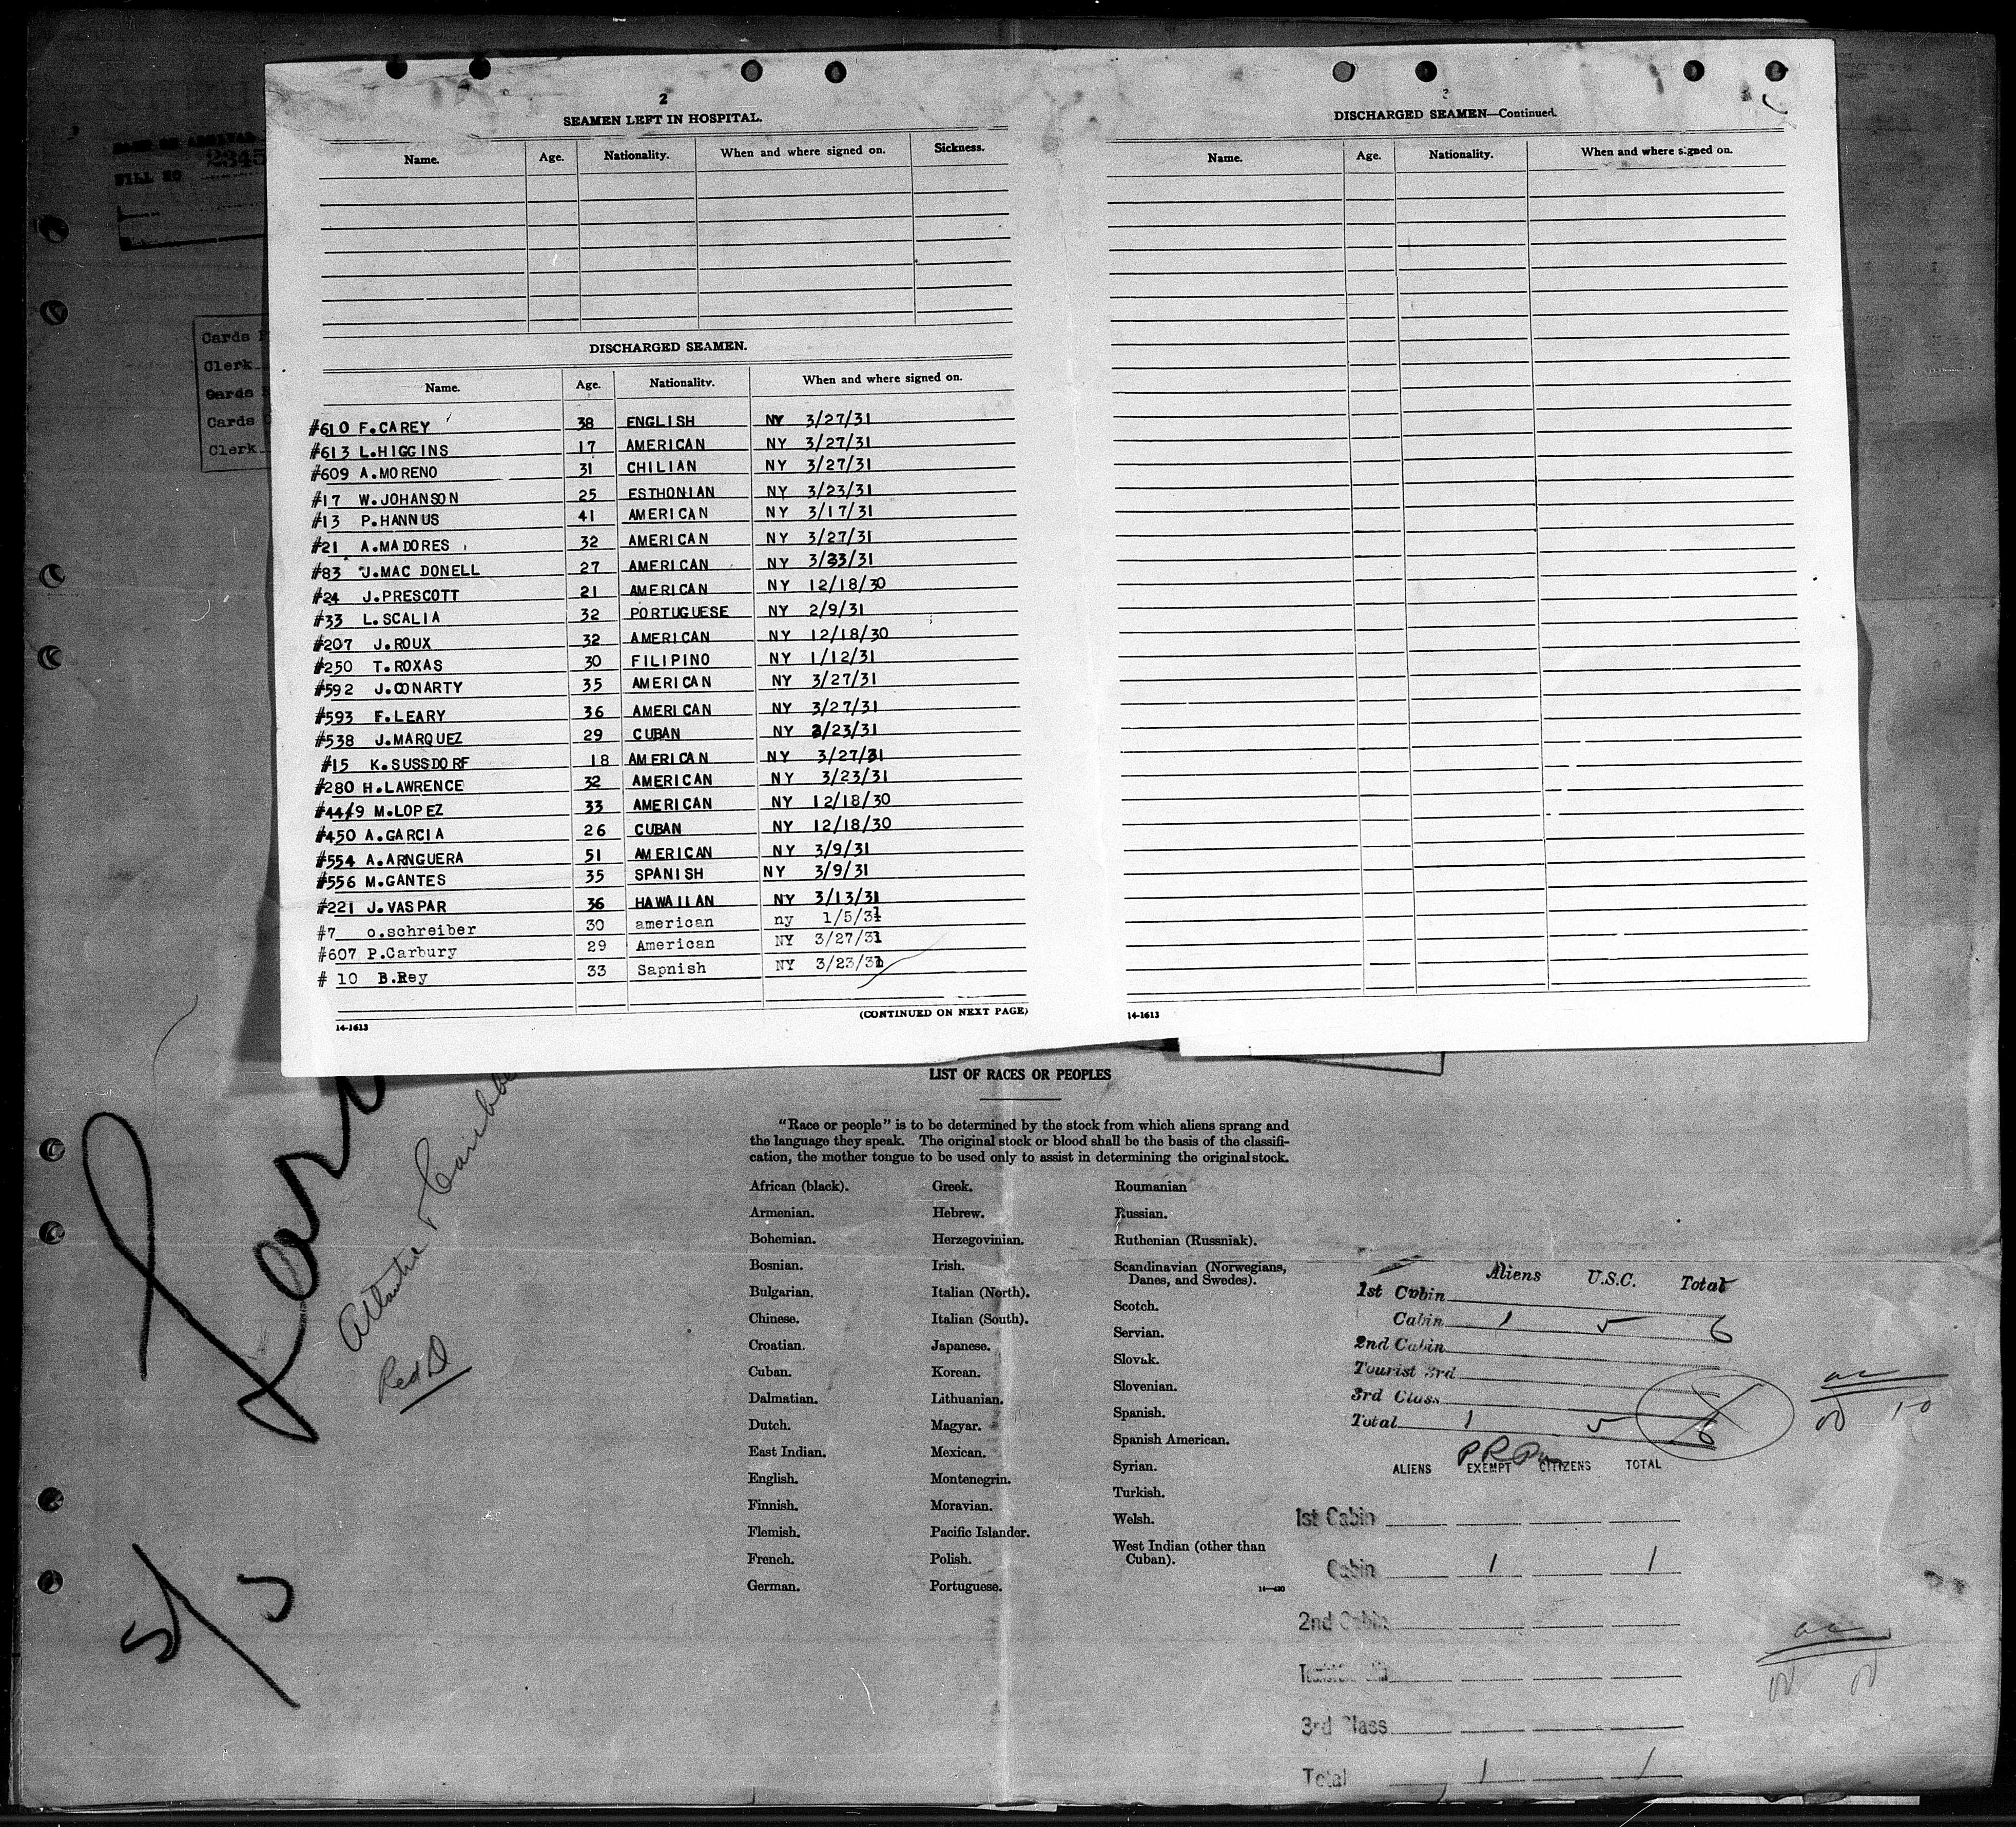 2
SEAMEN LEFT IN HOSPITAL.
Name. Age. Nationality. When and where signed on. Sickness.
DISCHARGED SEAMEN.
Name. Age. Nationality. When and where signed on.
#610 F.CAREY 38 ENGLISH NY 3/27/31
#613 L.HIGGINS 17 AMERICAN NY 3/27/31
#609 A.MORENO 31 CHILIAN NY 3/27/31
#17 W.JOHANSON 25 ESTHONIAN NY 3/23/31
#13 P.HANNUS 41 AMERICAN NY 3/17/31
#21 A.MADORES 32 AMERICAN NY 3/27/31
#83 J.MAC DONELL 27 AMERICAN NY 3/23/31
#24 J.PRESCOTT 21 AMERICAN NY 12/18/30
#33 L.SCALIA 32 PORTUGUESE NY 2/9/31
#207 J.ROUX 32 AMERICAN NY 12/18/30
#250 T.ROXAS 30 FILIPINO NY 1/12/31
#592 J.CONARTY 35 AMERICAN NY 3/27/31
#593 F.LEARY 36 AMERICAN NY 3/27/31
#538 J.MARQUEZ 29 CUBAN NY 2/23/31
#15 K.SUSSDORF 18 AMERICAN NY 3/27/31
#280 H.LAWRENCE 32 AMERICAN NY 3/23/31
#449 M.LOPEZ 33 AMERICAN NY 12/18/30
#450 A.GARCIA 26 CUBAN NY 12/18/30
#554 A.ARNGUERA 51 AMERICAN NY 3/9/31
#556 M.GANTES 35 SPANISH NY 3/9/31
#221 J.VASPAR 36 HAWAIIAN NY 3/13/31
#7 o.schreiber 30 american ny 1/5/31
#607 P.Carbury 29 American NY 3/27/31
# 10 B.Rey 33 Sapnish NY 3/23/31
(CONTINUED ON NEXT PAGE)
14-1613
DISCHARGED SEAMEN—Continued.
Name. Age. Nationality. When and where signed on.
14-1613
2345
Cards
Clerk
Cards
Cards
Clerk
Atlantic &
Red D
LIST OF RACES OR PEOPLES
"Race or people" is to be determined by the stock from which aliens sprang and
the language they speak. The original stock or blood shall be the basis of the classifi-
cation, the mother tongue to be used only to assist in determining the original stock.
African (black).
Armenian.
Bohemian.
Bosnian.
Bulgarian.
Chinese.
Croatian.
Cuban.
Dalmatian.
Dutch.
East Indian.
English.
Finnish.
Flemish.
French.
German.
Greek.
Hebrew.
Herzegovinian.
Irish.
Italian (North).
Italian (South).
Japanese.
Korean.
Lithuanian.
Magyar.
Mexican.
Montenegrin.
Moravian.
Pacific Islander.
Polish.
Portuguese.
Roumanian
Russian.
Ruthenian (Russniak).
Scandinavian (Norwegians,
Danes, and Swedes).
Scotch.
Servian.
Slovak.
Slovenian.
Spanish.
Spanish American.
Syrian.
Turkish.
Welsh.
West Indian (other than
Cuban).
Aliens U.S.C. Total
1st Cabin
Cabin 1 5 6
2nd Cabin
Tourist 3rd
3rd Class
Total 1 5 6
ALIENS EXEMPT CITIZENS TOTAL
1st Cabin
Cabin 1 1
2nd Cabin
3rd Class
Total 1 1